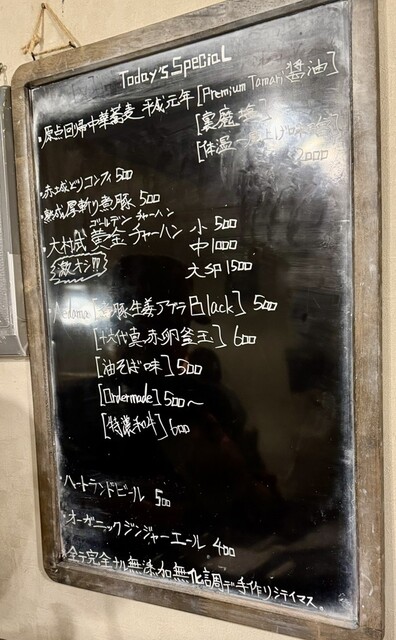 Today's Special
・原点回帰中華蕎麦 平成元年 [Premium Tamari 醤油]
[裏魔塩]
[体温
2000
・赤土城どりコンフィ 500
・熟成厚斬り煮豚 500
ゴールデン チャーハン
・大村式 黄金チャーハン 小 500
激オシ!!! 中 1000
大卵 1500
・Aedama [豚生姜アブラ Black] 500
[十六代真・赤卵釜玉] 600
[油そば味] 500
[Ordermade] 500〜
[特濃和牛] 600
・ハートランドビール 500
・オーガニックジンジャーエール 400
全テ完全ナル無添加無化調デ手作リシテイマス。